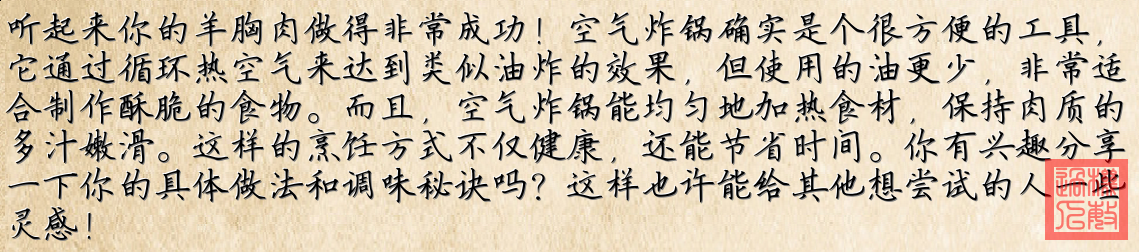 听起来你的羊胸肉做得非常成功！空气炸锅确实是个很方便的工具，
它通过循环热空气来达到类似油炸的效果，但使用的油更少，非常适
合制作酥脆的食物。而且，空气炸锅能均匀地加热食材，保持肉质的
多汁嫩滑。这样的烹饪方式不仅健康，还能节省时间。你有兴趣分享
一下你的具体做法和调味秘诀吗？这样也许能给其他想尝试的人一些
灵感！